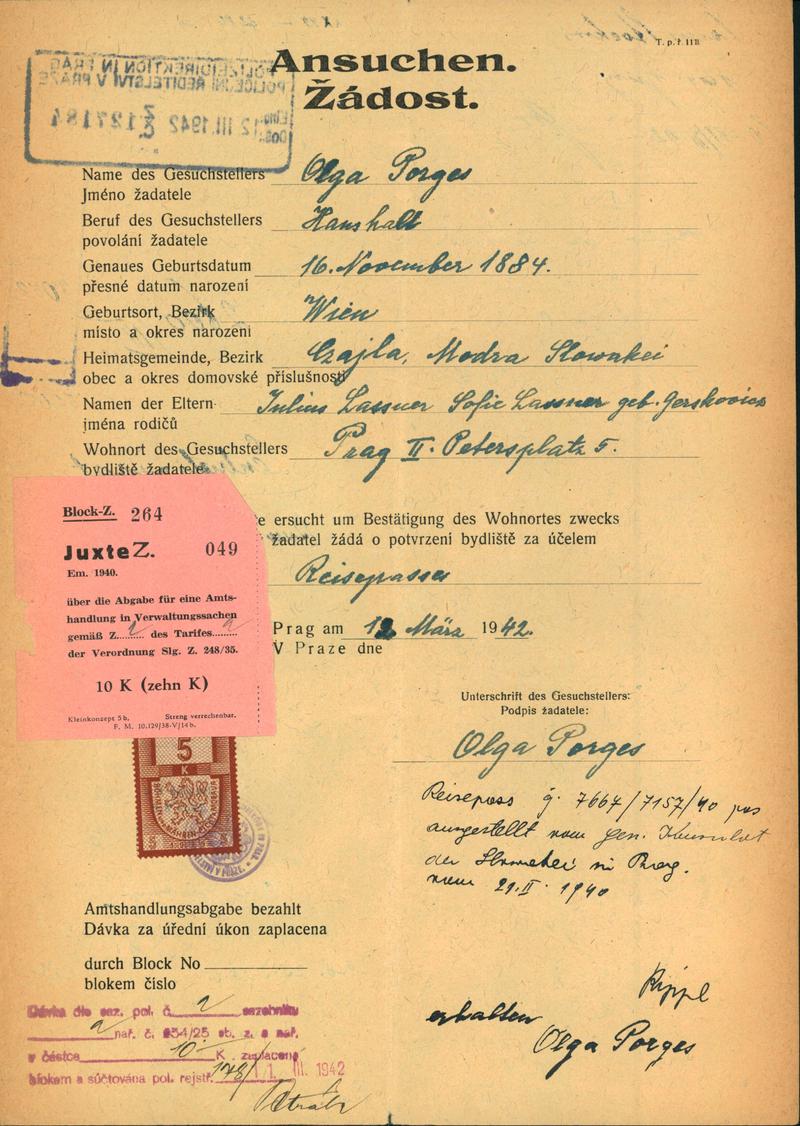 T. p. f. 11B
Ansuchen.
Žádost.
POLIZEIDIREKTION IN PRAG
POLICEJNÍ ŘEDITELSTVÍ V PRAZE
12 III. 1942 127184
Name des Gesuchstellers Olga Porges
Jméno žadatele
Beruf des Gesuchstellers Haushalt
povolání žadatele
Genaues Geburtsdatum 16. November 1884.
přesné datum narození
Geburtsort, Bezirk Wien
místo a okres narození
Heimatsgemeinde, Bezirk Czajla, Modra Slowakei
obec a okres domovské příslušnosti
Namen der Eltern Julius Lassner Sofie Lassner geb. Gerskovicz
jména rodičů
Wohnort des Gesuchstellers Prag II. Petersplatz 5.
bydliště žadatele
Block-Z. 264
Juxte Z. 049
Em. 1940.
über die Abgabe für eine Amts-
handlung in Verwaltungssachen
gemäß Z. 2 des Tarifes a
der Verordnung Slg. Z. 248/35.
10 K (zehn K)
Kleinkonzept 5 b. Streng verrechenbar.
F. M. 10.129/38-V/14 b.
ersucht um Bestätigung des Wohnortes zwecks
žadatel žádá o potvrzení bydliště za účelem
Reisepasses
Prag am 12 März 1942.
V Praze dne
Unterschrift des Gesuchstellers:
Podpis žadatele:
Olga Porges
5
K
Reisepass 7667/7157/40
ausgestellt vom Gen. Konsulat
der Slowakei in Prag.
vom 21. II. 1940
Amtshandlungsabgabe bezahlt
Dávka za úřední úkon zaplacena
durch Block No
blokem číslo
Rippl
erhalten
Olga Porges
Dávka dle saz. pol. č. 2 sazebníku
a nař. č. 254/25 sb. z. a nař.
v částce 10.- K zaplacena
blokem a súčtována pol. rejstř. 178/ 11. III. 1942